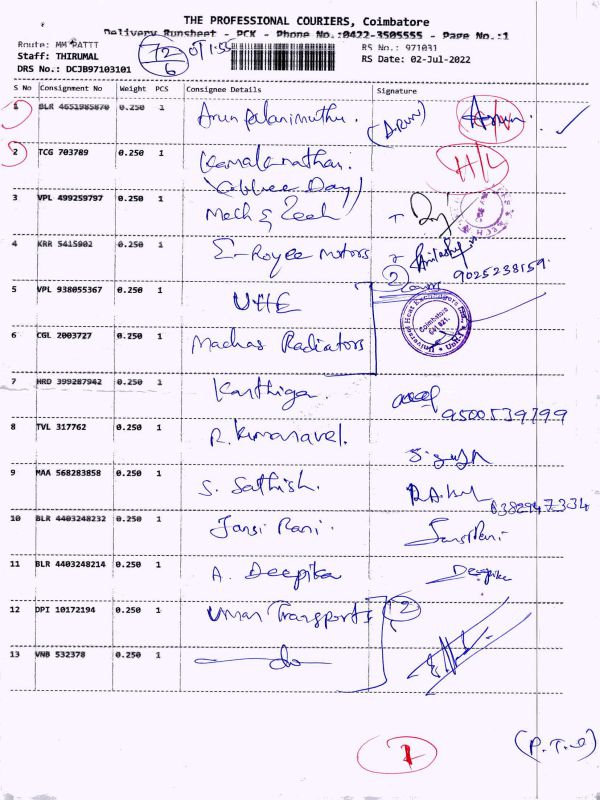 THE PROFESSIONAL COURIERS, Coimbatore
Delivery Runsheet - PCK - Phone No.:0422-3505555 - Page No.:1
Route: MM PATTI
Staff: THIRUMAL
DRS No.: DCJB97103101
72
6
RS No.: 971031
RS Date: 02-Jul-2022
S No Consignment No Weight PCS Consignee Details Signature
1 BLR 4651985870 0.250 1 Arun Palanimuthu. (ARUN)
2 TCG 703789 0.250 1 Kamalanathan. H/L
(Coffee Day)
3 VPL 499259797 0.250 1 Mech & Tech
4 KRR 5415902 0.250 1 E-Royce motors 9025238159
2
5 VPL 938055367 0.250 1 UHE
Universal Heat Exchangers
Coimbatore
641 021.
6 CGL 2003727 0.250 1 Madras Radiators
7 HRD 399287942 0.250 1 Karthiga. 9500539799
8 TVL 317762 0.250 1 R. Kumaravel.
9 MAA 568283858 0.250 1 S. Sathish.
10 BLR 4403248232 0.250 1 Jansi Rani. Jansi Rani
11 BLR 4403248214 0.250 1 A. Deepika Deepika
12 DPI 10172194 0.250 1 Umar Transports 2
13 VNB 532378 0.250 1 do
1
(P.T.O)